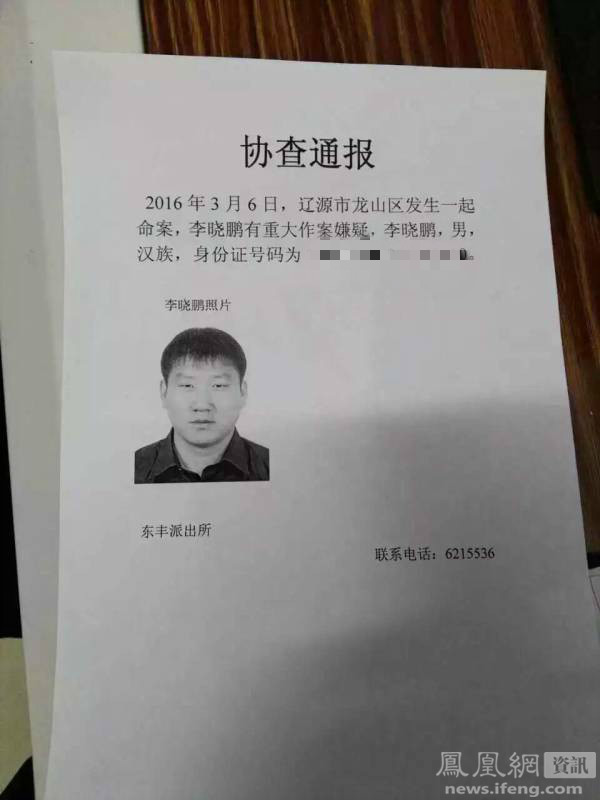 协查通报
2016年3月6日，辽源市龙山区发生一起
命案，李晓鹏有重大作案嫌疑，李晓鹏，男，
汉族，身份证号码为
李晓鹏照片
东丰派出所
联系电话：6215536
鳳凰網資訊
news.ifeng.com